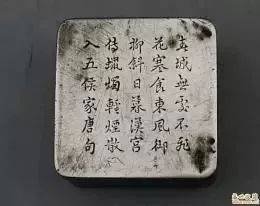 春城無處不飛
花寒食東風御
柳斜日暮漢宮
傳蠟燭輕煙散
入五侯家唐句